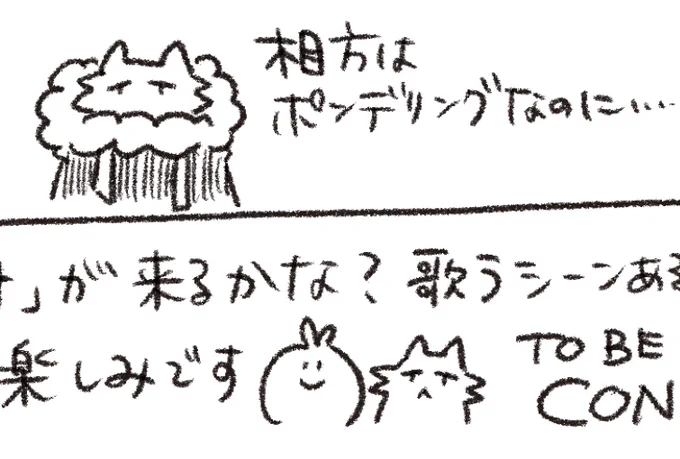 相方は
ポンデリングなのに…
」が来るかな?歌うシーンある
楽しみです TO BE
CON